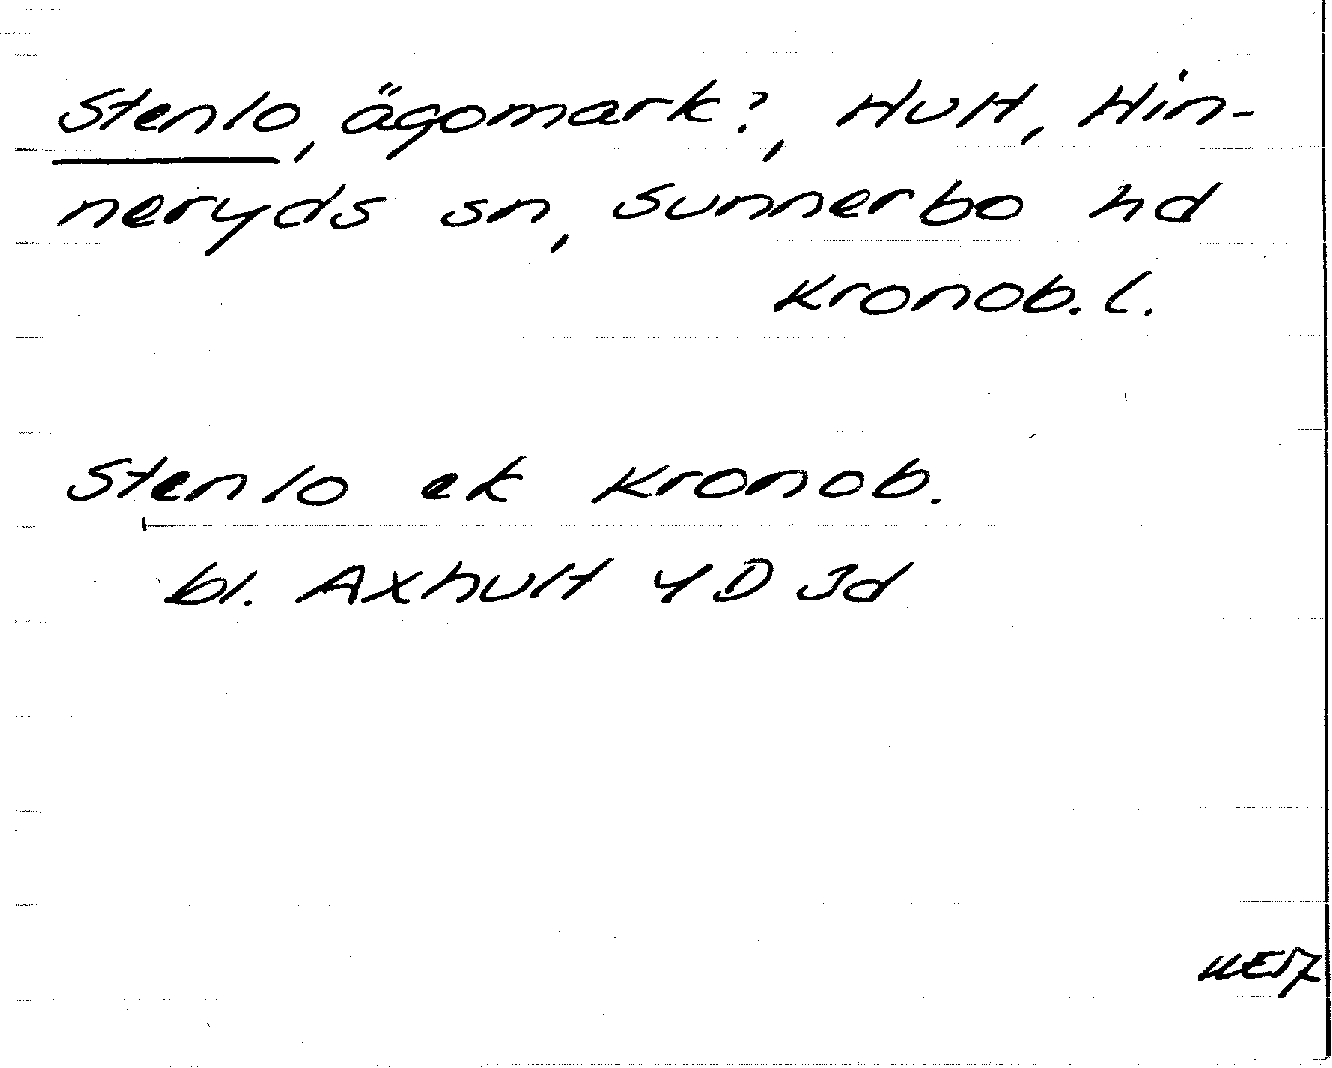 Stenlo, ägomark?, Hult, Hin-
neryds sn, Sunnerbo hd
Kronob. l.
Stenlo ek Kronob.
bl. Axhult 4D Jd